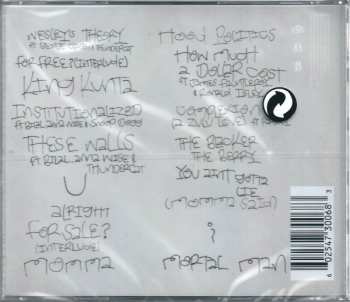 Wesley's Theory
For Free? (Interlude)
King Kunta
Institutionalized
ft Bilal Anna Wise & Snoop Dogg
These Walls
ft Bilal Anna Wise &
Thundercat
U
Alright
For Sale?
(Interlude)
Momma
Hood Politics
How Much
A Dollar Cost
ft James Fauntleroy
& Ronald Isley
Complexion
(A Zulu Love)
The Blacker
The Berry
You Aint Gotta
Lie
(Momma Said)
i
Mortal Man
6 02547 30068 3